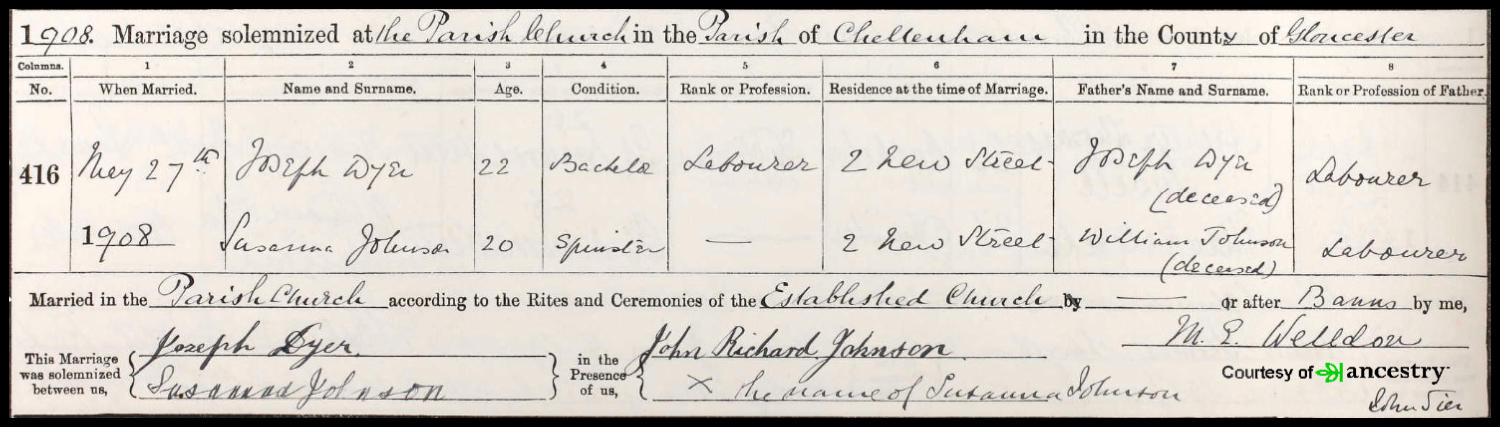 1908. Marriage solemnized at the Parish Church in the Parish of Cheltenham in the County of Gloucester
Columns. 1 2 3 4 5 6 7 8
No. When Married. Name and Surname. Age. Condition. Rank or Profession. Residence at the time of Marriage. Father's Name and Surname. Rank or Profession of Father.
416 May 27th Joseph Dyer 22 Bachelor Labourer 2 New Street Joseph Dyer Labourer
(deceased)
1908 Susanna Johnson 20 Spinster — 2 New Street William Johnson Labourer
(deceased)
Married in the Parish Church according to the Rites and Ceremonies of the Established Church by — or after Banns by me,
M. E. Welldon
This Marriage was solemnized between us, Joseph Dyer in the Presence of us, John Richard Johnson
Susanna Johnson X The name of Susanna Johnson
Courtesy of ancestry
John Tier